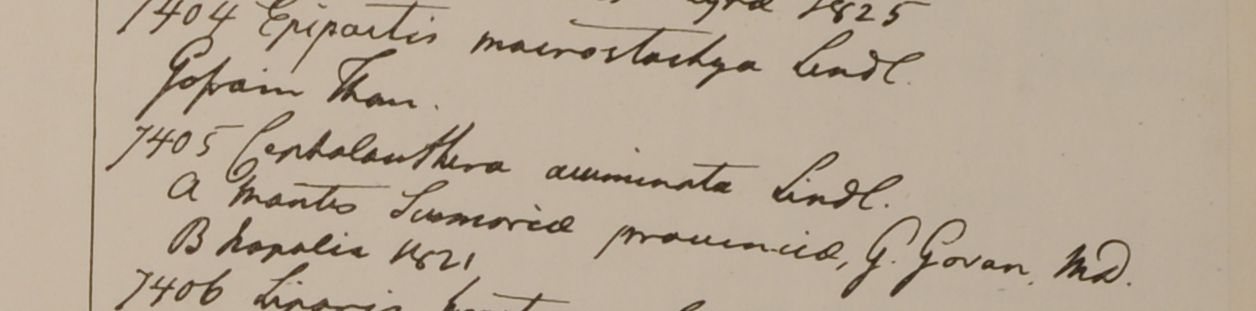 1825
7404 Epipactis macrostachya Lindl.
Gossain Than.
7405 Cephalanthera acuminata Lindl.
A Montes Sirmoriae provinciae, G. Govan, MD.
B Napalia 1821
7406 Liparis